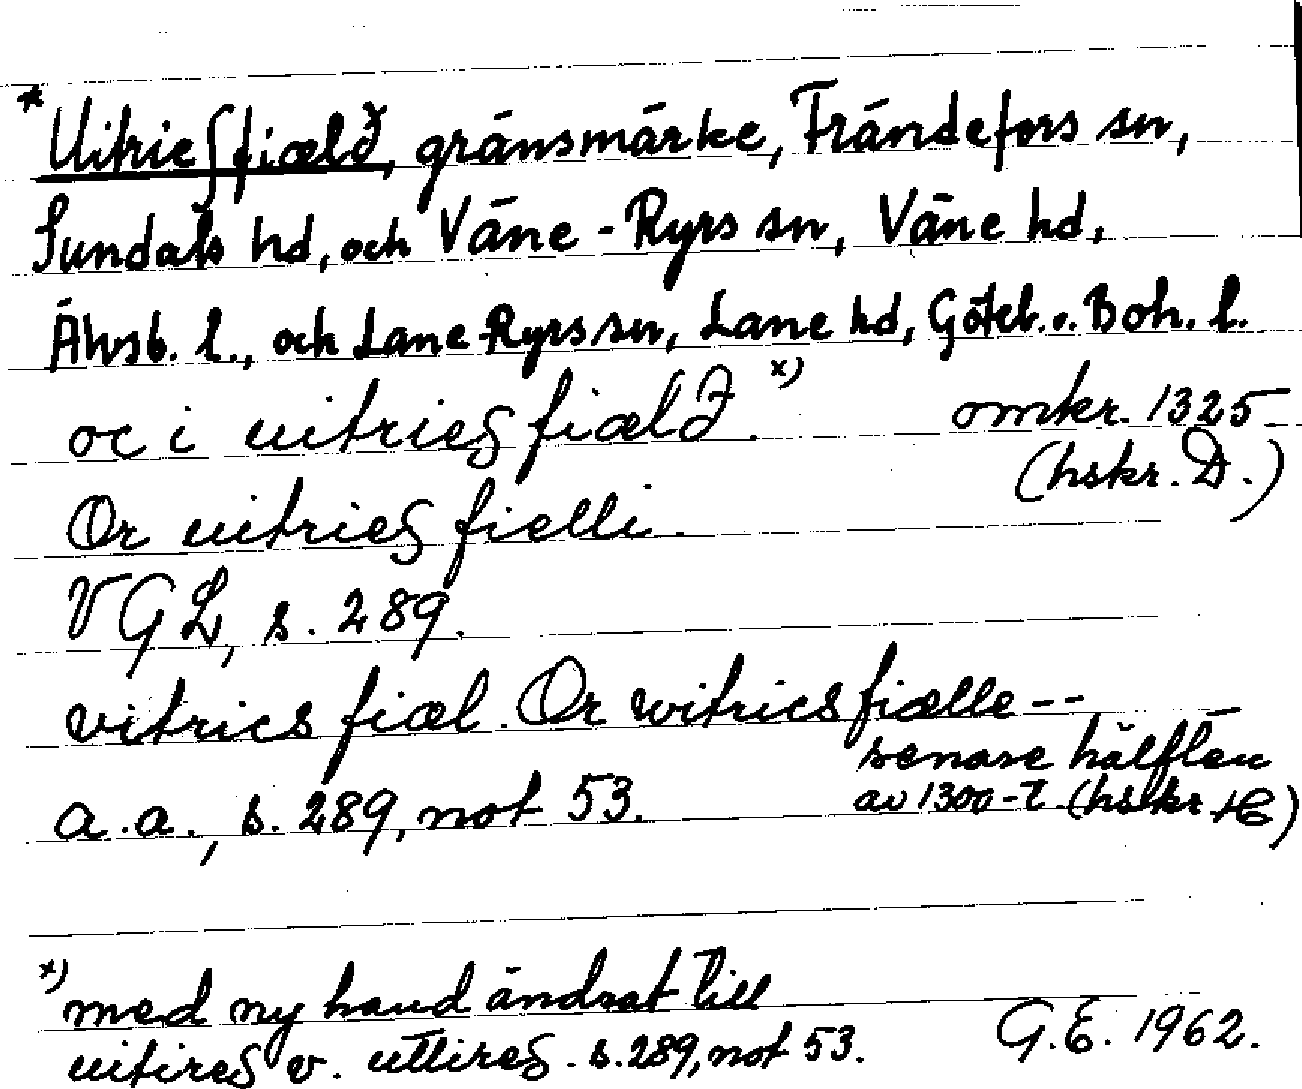 *Uitrieſ fiælð, gränsmärke, Frändefors sn,
Sundals hd, och Väne-Ryrs sn, Väne hd,
Älvsb. l., och Lane Ryrs sn, Lane hd, Göteb. o. Boh. l.
oc i uitrieſ fiælð. x) omkr. 1325
(hskr. D.)
Or uitrieſ fielli.
VGL, s. 289.
vitrics fiæl. Or witrics fiælle--
senare hälften
av 1300-t (hskr H)
a.a., s. 289, not 53.
x) med ny hand ändrat till
uitireſ v. uttireſ. s. 289, not 53.
G.E. 1962.